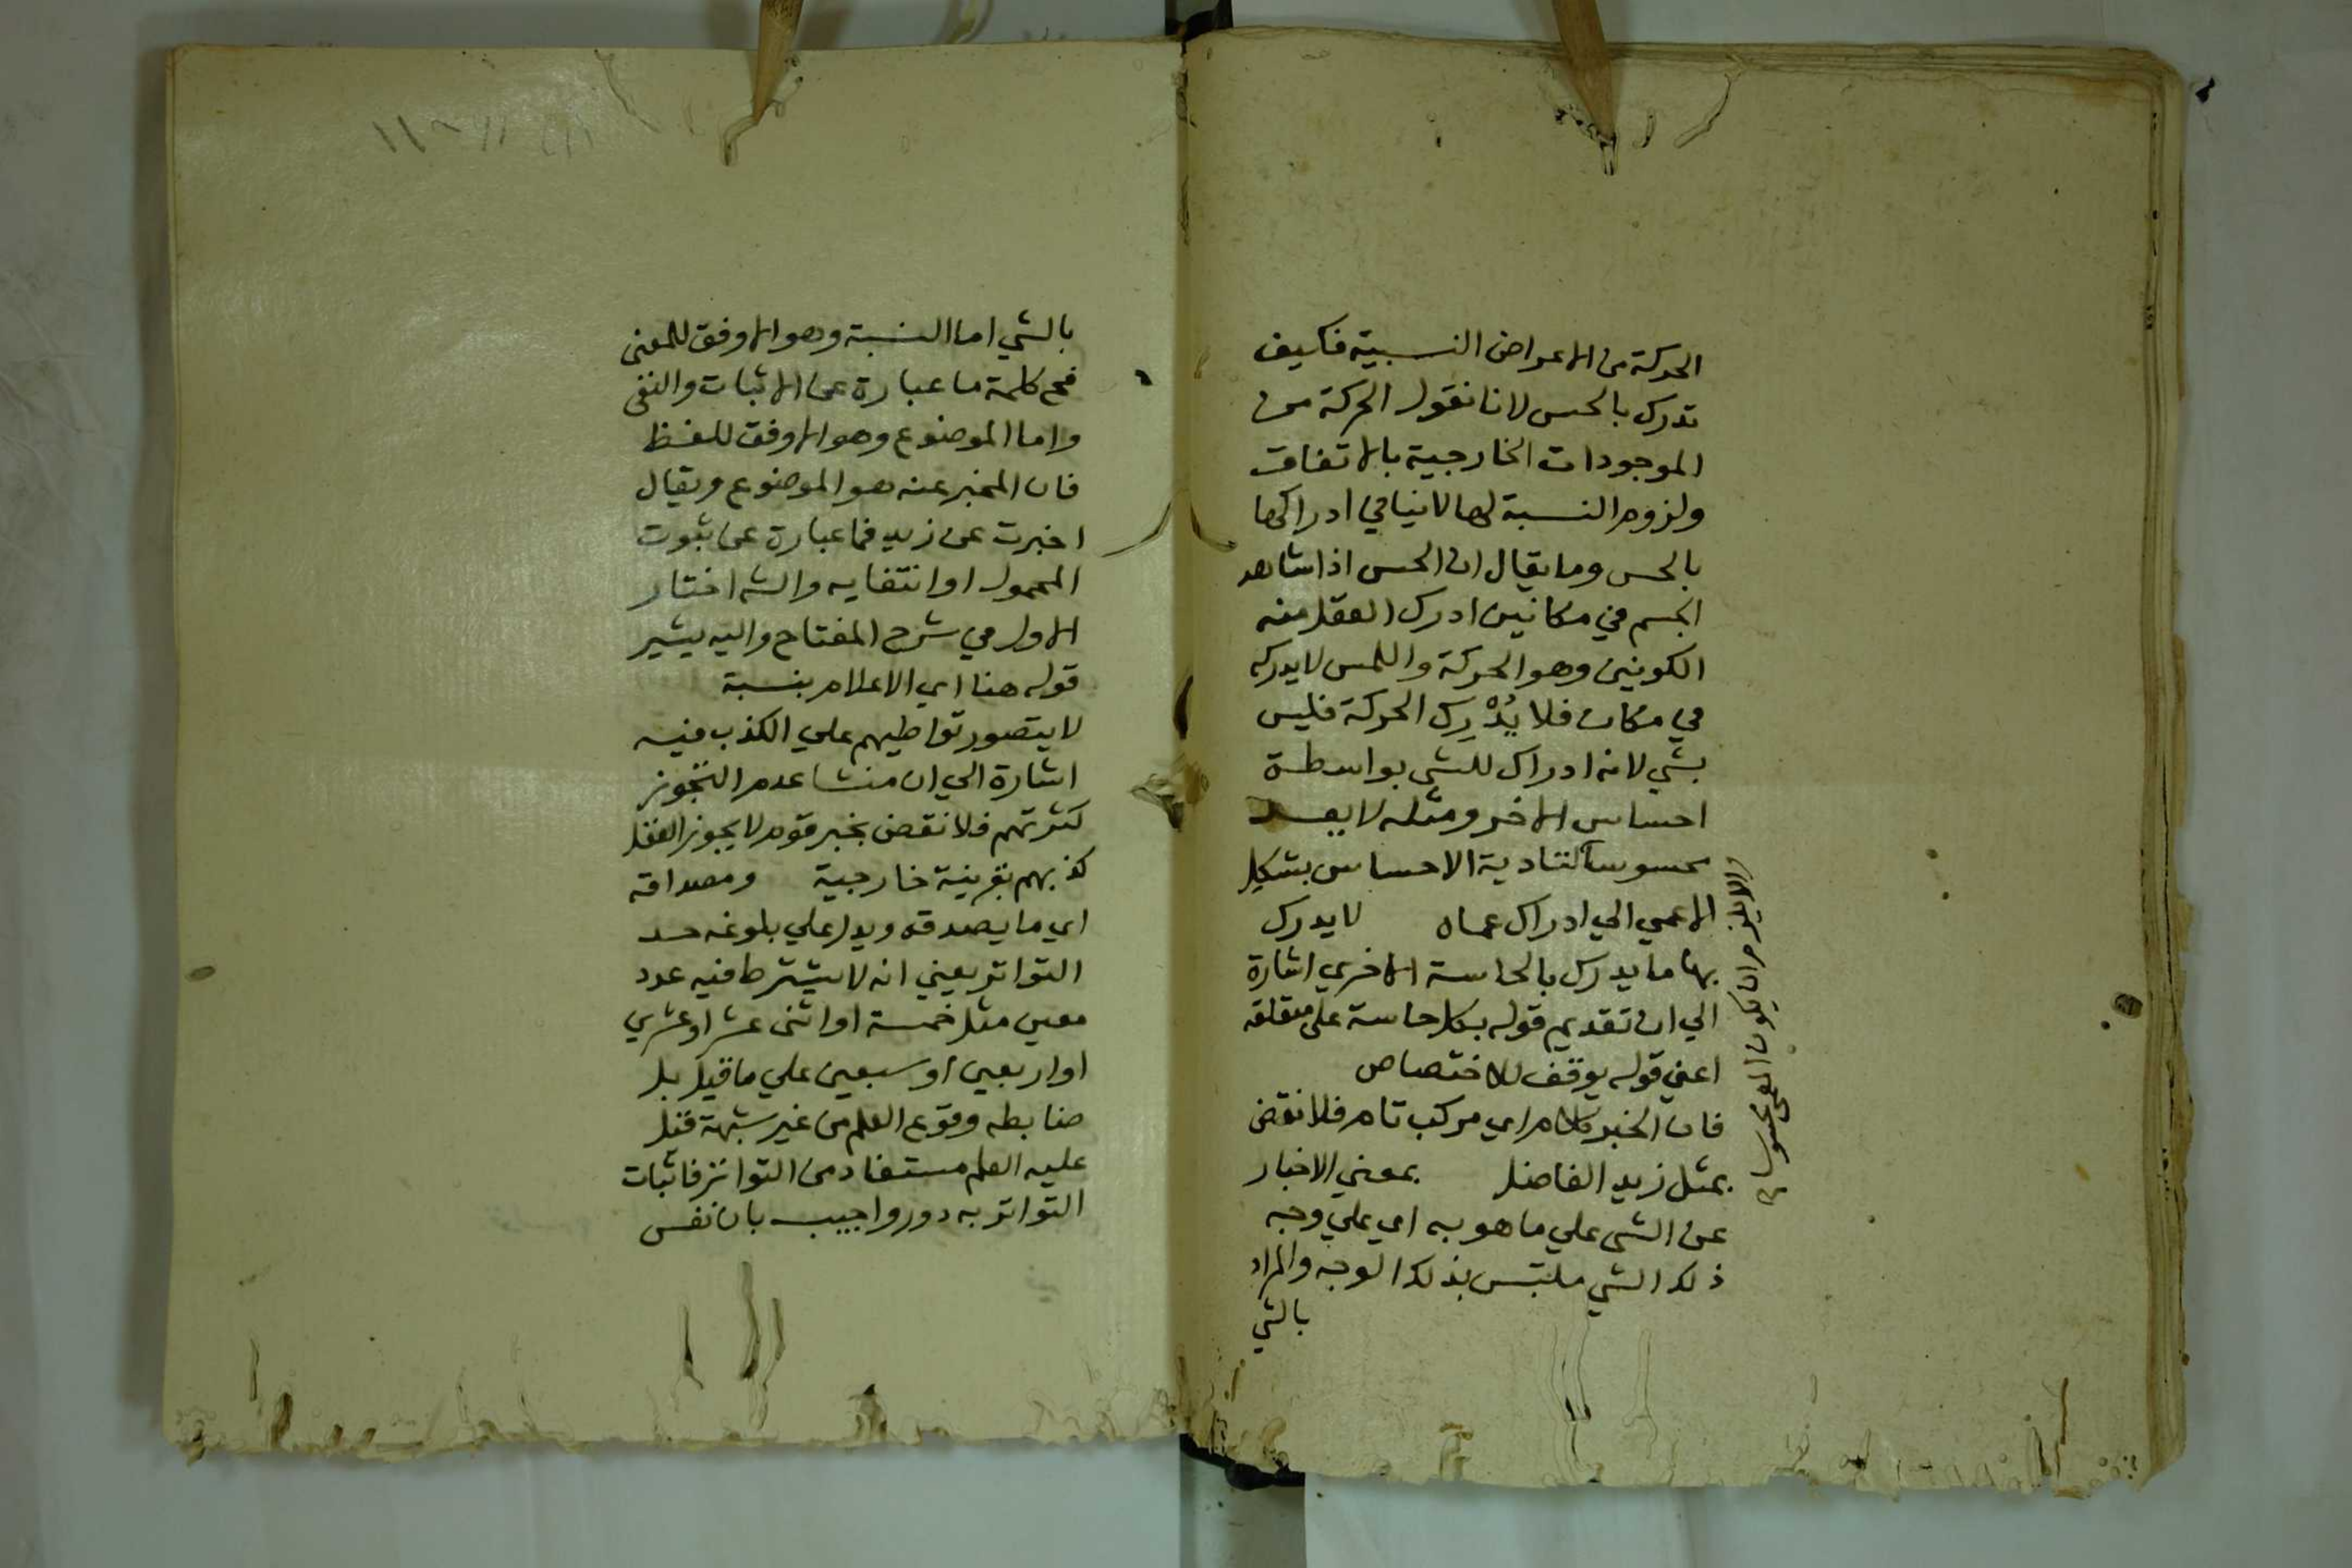 الحركة من الاعراض النسبية فكيف
تدرك بالحس لانا نقول الحركة من
الموجودات الخارجية بالاتفاق
ولزوم النسبة لها لا ينافي ادراكها
بالحس وما يقال ان الحس اذا شاهد
الجسم في مكانين ادرك العقل منه
الكونين وهو الحركة واللمس لا يدركه
في مكان فلا يُدْرِك الحركة فليس
بشي لانه ادراك للشي بواسطة
احساس الاخر ومثله لا يعد
محسوسا لتادية الاحساس بشكل
الاعمي الي ادراك عماه لا يدرك
بها ما يدرك بالحاسة الاخري اشارة
الي ان تقديم قوله بكل حاسة علي متعلقه
اعني قوله يوقف للاختصاص
فان الخبر كلام اي مركب تام فلا نقض
بمثل زيد الفاضل بمعني الاخبار
عن الشي علي ما هو به اي علي وجه
ذلك الشي ملتبس بذلك الوجه والمراد
بالشي
والا يلزم ان يكون العمي محسوسا
بالشي اما النسبة وهو الاوفق للمعنى
فح كلمة ما عبارة عن الاثبات والنفي
واما الموضوع وهو الاوفق للفظ
فان المخبر عنه هو الموضوع ويقال
اخبرت عن زيد فما عبارة عن ثبوت
المحمول او انتفايه والشه اختار
الاول في شرح المفتاح واليه يشير
قوله هنا اي الاعلام بنسبة
لا يتصور تواطيهم علي الكذب فيه
اشارة الي ان منشا عدم التجوز
كثرتهم فلا نقض بخبر قوم لا يجوز العقل
كذبهم بقرينة خارجية ومصداقه
اي ما يصدقه ويدل علي بلوغه حد
التواتر يعني انه لا يشترط فيه عدد
معين مثل خمسة او اثنى عشر او عشري
او اربعين او سبعين علي ما قيل بل
ضابطه وقوع العلم من غير شبهة قيل
عليه العلم مستفاد من التواتر فاثبات
التواتر به دور واجيب بان نفس